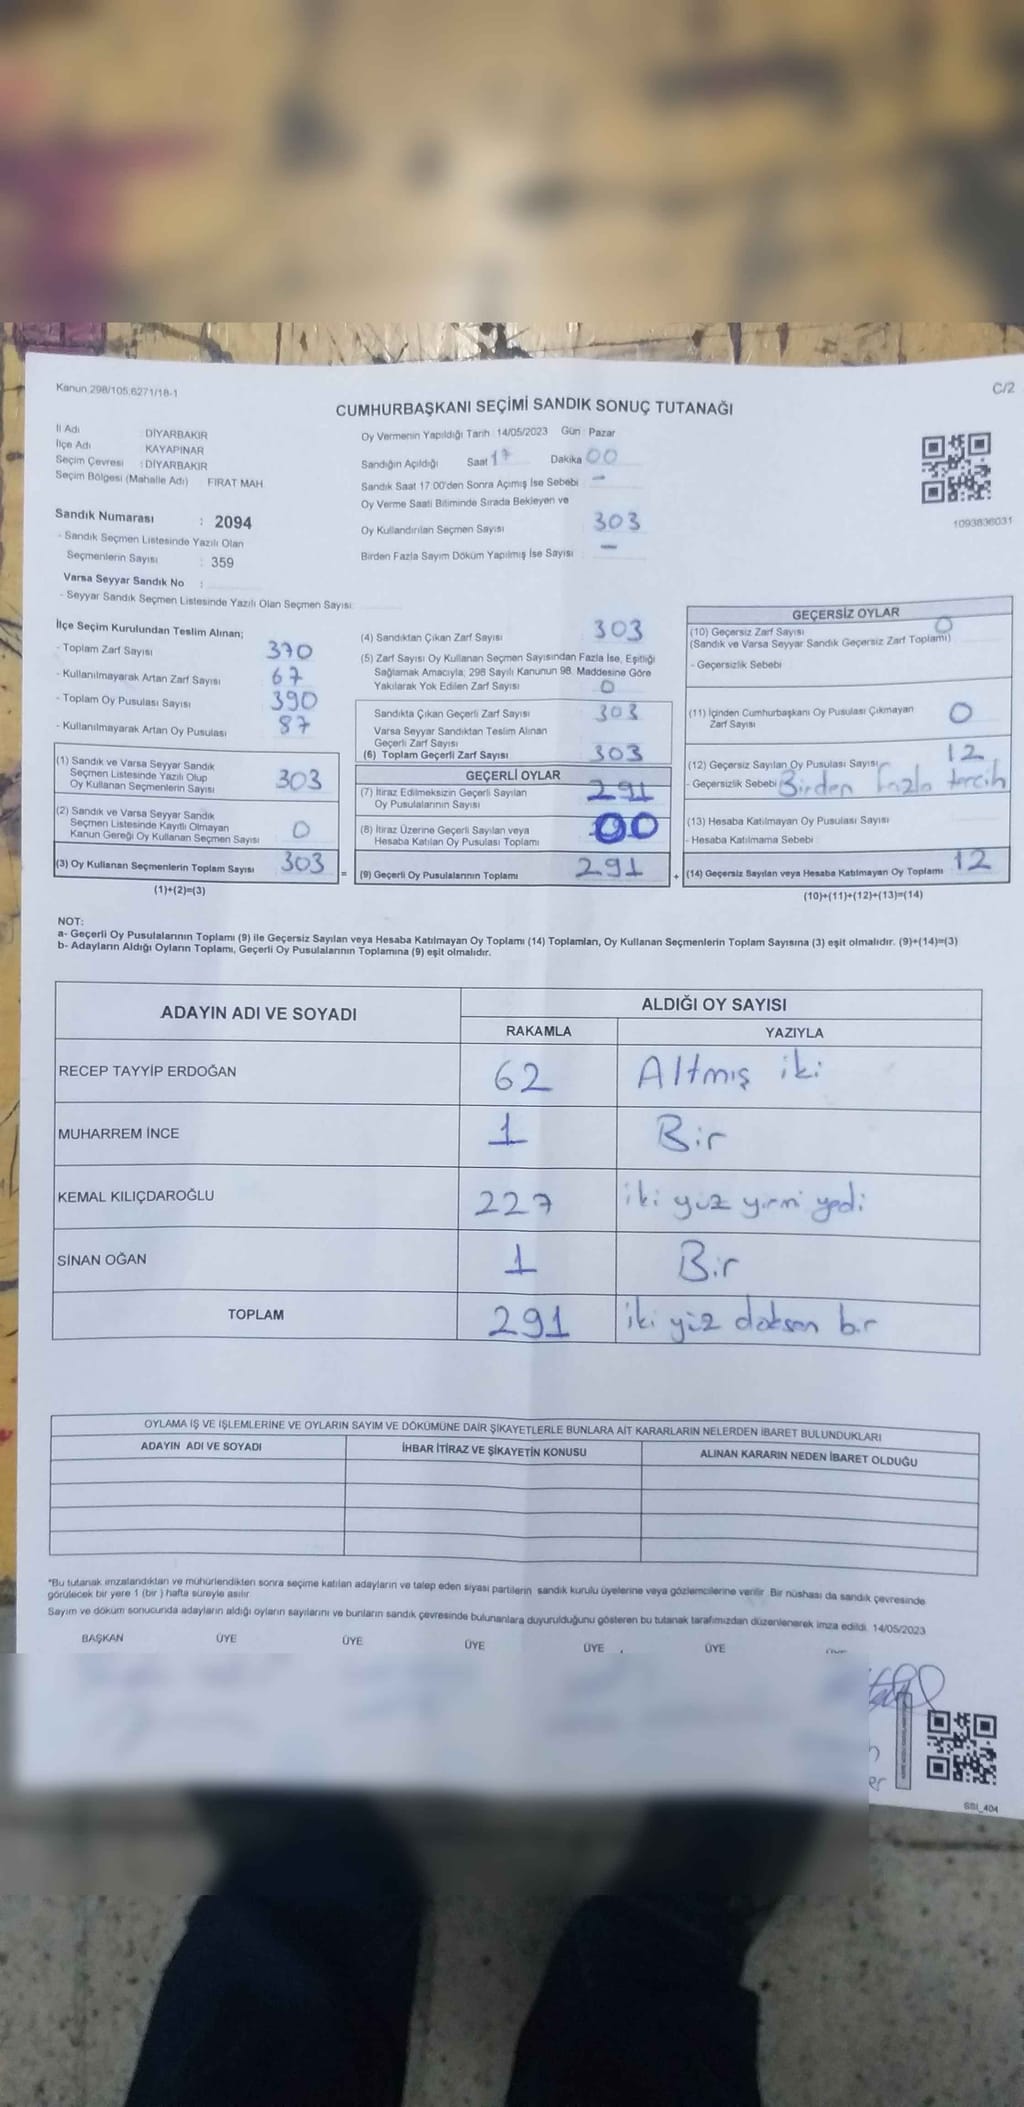 Kanun 298/105,6271/18-1
C/2
CUMHURBAŞKANI SEÇİMİ SANDIK SONUÇ TUTANAĞI
İl Adı : DİYARBAKIR
İlçe Adı : KAYAPINAR
Seçim Çevresi : DİYARBAKIR
Seçim Bölgesi (Mahalle Adı) FIRAT MAH
Sandık Numarası : 2094
- Sandık Seçmen Listesinde Yazılı Olan
Seçmenlerin Sayısı : 359
Varsa Seyyar Sandık No :
- Seyyar Sandık Seçmen Listesinde Yazılı Olan Seçmen Sayısı:
Oy Vermenin Yapıldığı Tarih : 14/05/2023 Gün : Pazar
Sandığın Açıldığı Saat 17 Dakika 00
Sandık Saat 17:00'den Sonra Açımış İse Sebebi : -
Oy Verme Saati Bitiminde Sırada Bekleyen ve
Oy Kullandırılan Seçmen Sayısı 303
Birden Fazla Sayım Döküm Yapılmış İse Sayısı -
1093836031
İlçe Seçim Kurulundan Teslim Alınan;
- Toplam Zarf Sayısı 370
- Kullanılmayarak Artan Zarf Sayısı 67
- Toplam Oy Pusulası Sayısı 390
- Kullanılmayarak Artan Oy Pusulası 87
(1) Sandık ve Varsa Seyyar Sandık
Seçmen Listesinde Yazılı Olup
Oy Kullanan Seçmenlerin Sayısı 303
(2) Sandık ve Varsa Seyyar Sandık
Seçmen Listesinde Kayıtlı Olmayan
Kanun Gereği Oy Kullanan Seçmen Sayısı 0
(3) Oy Kullanan Seçmenlerin Toplam Sayısı 303
(1)+(2)=(3)
(4) Sandıktan Çıkan Zarf Sayısı 303
(5) Zarf Sayısı Oy Kullanan Seçmen Sayısından Fazla İse, Eşitliği
Sağlamak Amacıyla; 298 Sayılı Kanunun 98. Maddesine Göre
Yakılarak Yok Edilen Zarf Sayısı 0
Sandıkta Çıkan Geçerli Zarf Sayısı 303
Varsa Seyyar Sandıktan Teslim Alınan
Geçerli Zarf Sayısı
(6) Toplam Geçerli Zarf Sayısı 303
GEÇERLİ OYLAR
(7) İtiraz Edilmeksizin Geçerli Sayılan
Oy Pusulalarının Sayısı 291
(8) İtiraz Üzerine Geçerli Sayılan veya
Hesaba Katılan Oy Pusulası Toplamı 00
= (9) Geçerli Oy Pusulalarının Toplamı 291
GEÇERSİZ OYLAR
(10) Geçersiz Zarf Sayısı 0
(Sandık ve Varsa Seyyar Sandık Geçersiz Zarf Toplamı)
- Geçersizlik Sebebi
(11) İçinden Cumhurbaşkanı Oy Pusulası Çıkmayan
Zarf Sayısı 0
(12) Geçersiz Sayılan Oy Pusulası Sayısı 12
- Geçersizlik Sebebi Birden fazla tercih
(13) Hesaba Katılmayan Oy Pusulası Sayısı
- Hesaba Katılmama Sebebi
+ (14) Geçersiz Sayılan veya Hesaba Katılmayan Oy Toplamı 12
(10)+(11)+(12)+(13)=(14)
NOT:
a- Geçerli Oy Pusulalarının Toplamı (9) ile Geçersiz Sayılan veya Hesaba Katılmayan Oy Toplamı (14) Toplamları, Oy Kullanan Seçmenlerin Toplam Sayısına (3) eşit olmalıdır. (9)+(14)=(3)
b- Adayların Aldığı Oyların Toplamı, Geçerli Oy Pusulalarının Toplamına (9) eşit olmalıdır.
ADAYIN ADI VE SOYADI
ALDIĞI OY SAYISI
RAKAMLA YAZIYLA
RECEP TAYYİP ERDOĞAN 62 Altmış iki
MUHARREM İNCE 1 Bir
KEMAL KILIÇDAROĞLU 227 iki yüz yirmi yedi
SİNAN OĞAN 1 Bir
TOPLAM 291 iki yüz doksan bir
OYLAMA İŞ VE İŞLEMLERİNE VE OYLARIN SAYIM VE DÖKÜMÜNE DAİR ŞİKAYETLERLE BUNLARA AİT KARARLARIN NELERDEN İBARET BULUNDUKLARI
ADAYIN ADI VE SOYADI İHBAR İTİRAZ VE ŞİKAYETİN KONUSU ALINAN KARARIN NEDEN İBARET OLDUĞU
*Bu tutanak imzalandıktan ve mühürlendikten sonra seçime katılan adayların ve talep eden siyasi partilerin sandık kurulu üyelerine veya gözlemcilerine verilir. Bir nüshası da sandık çevresinde
görülecek bir yere 1 (bir ) hafta süreyle asılır.
Sayım ve döküm sonucunda adayların aldığı oyların sayılarını ve bunların sandık çevresinde bulunanlara duyurulduğunu gösteren bu tutanak tarafımızdan düzenlenerek imza edildi. 14/05/2023
BAŞKAN ÜYE ÜYE ÜYE ÜYE ÜYE
SSI_404